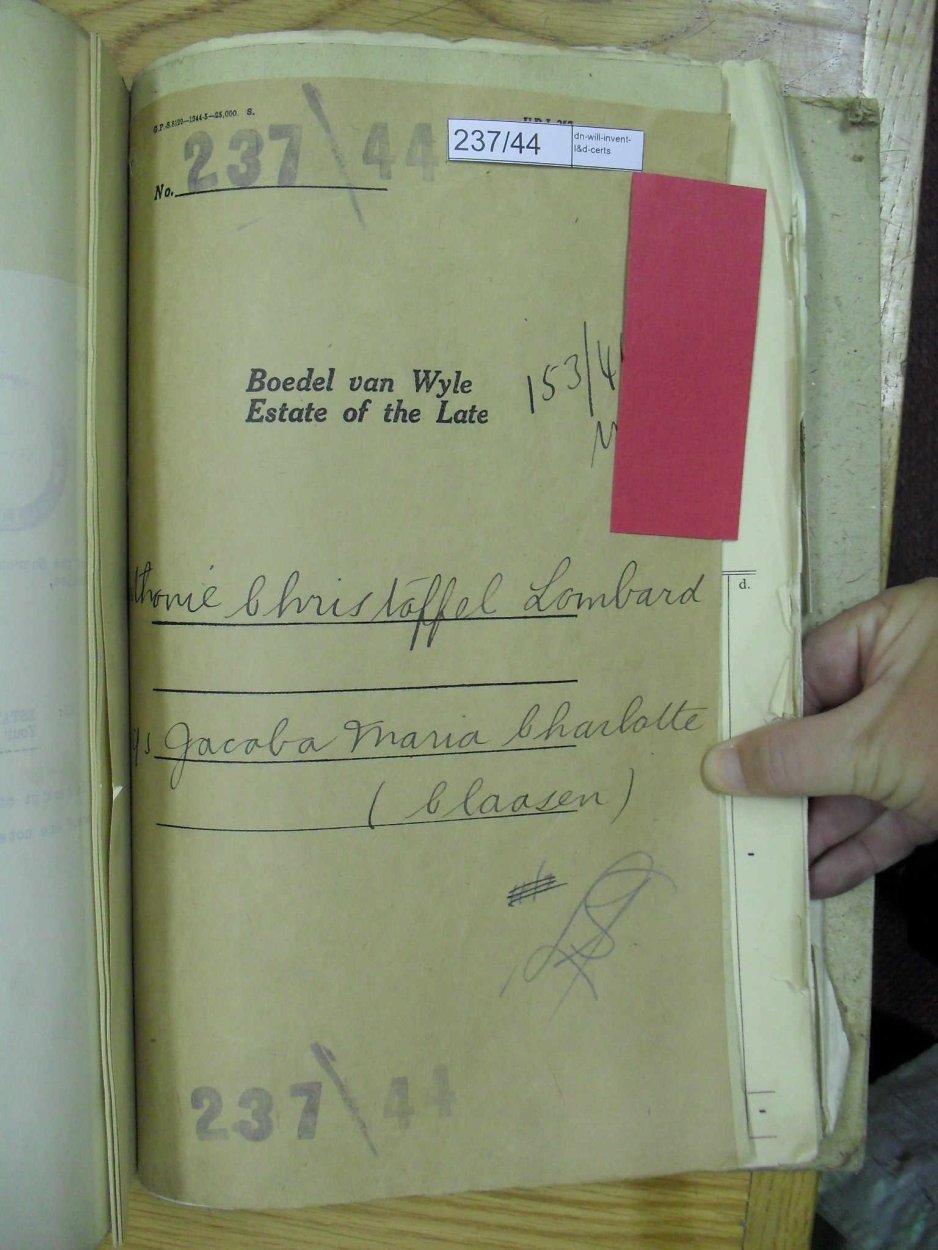 G.P.-S.8120—1944-5—25,000. S.
237/44
dn-will-invent-
l&d-certs
No. 237 \ 44
Boedel van Wyle
Estate of the Late
153/4
thonie Christoffel Lombard
Jacoba Maria Charlotte
(Claasen)
237 \ 44
d.